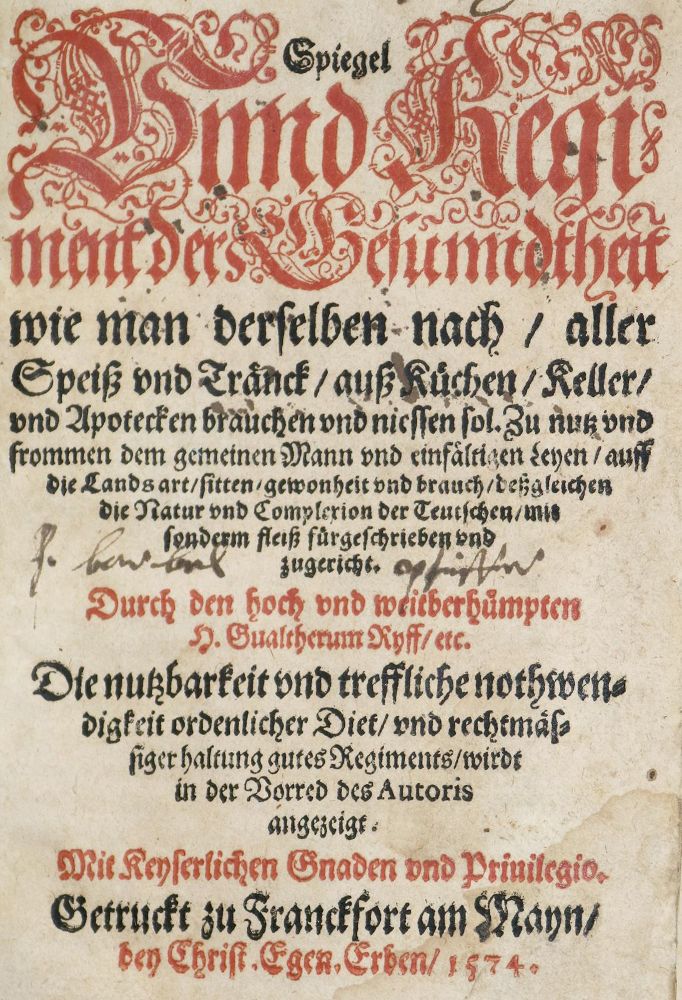 Spiegel
Vnnd Regi
ment der Gesunndtheit
wie man derselben nach / aller
Speiß vnd Tränck / auß Küchen / Keller /
vnd Apotecken brauchen vnd niessen sol. Zu nutz vnd
frommen dem gemeinen Mann vnd einfältigen Leyen / auff
die Lands art / sitten / gewonheit vnd brauch / deßgleichen
die Natur vnd Complexion der Teutschen / mit
sonderm fleiß fürgeschrieben vnd
zugericht.
Durch den hoch vnd weitberhůmpten
H. Gualtherum Ryff / etc.
Die nutzbarkeit vnd treffliche nothwen⸗
digkeit ordenlicher Diet / vnd rechtmäs⸗
siger haltung gutes Regiments / wirdt
in der Vorred des Autoris
angezeigt.
Mit Keyserlichen Gnaden vnd Priuilegio.
Getruckt zu Franckfort am Mayn /
bey Christ. Egen. Erben / 1574.